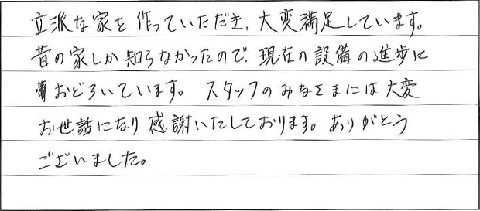 立派な家を作っていただき、大変満足しています。
昔の家しか知らなかったので、現在の設備の進歩に
おどろいています。スタッフのみなさまには大変
お世話になり感謝いたしております。ありがとう
ございました。